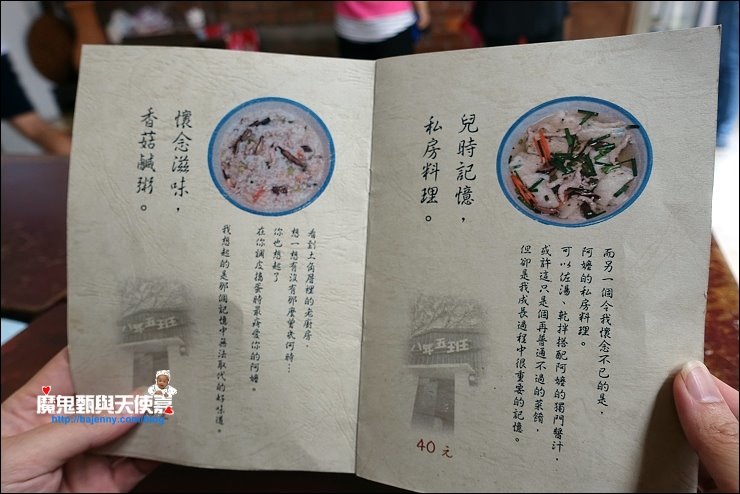 懷念滋味，
香菇鹹粥。
看到土角厝裡的老廚房，
想一想有沒有那麼曾幾何時…
你也想起了
在你調皮搗蛋時最疼愛你的阿嬤。
我想起的是那個記憶中無法取代的好味道。
兒時記憶，
私房料理。
而另一個令我懷念不已的是，
阿嬤的私房料理。
可以佐湯、乾拌搭配阿嬤的獨門醬汁，
或許這只是個再普通不過的菜餚，
但卻是我成長過程中很重要的記憶。
40元
魔鬼甄與天使嘉
http://bajenny.com/blog